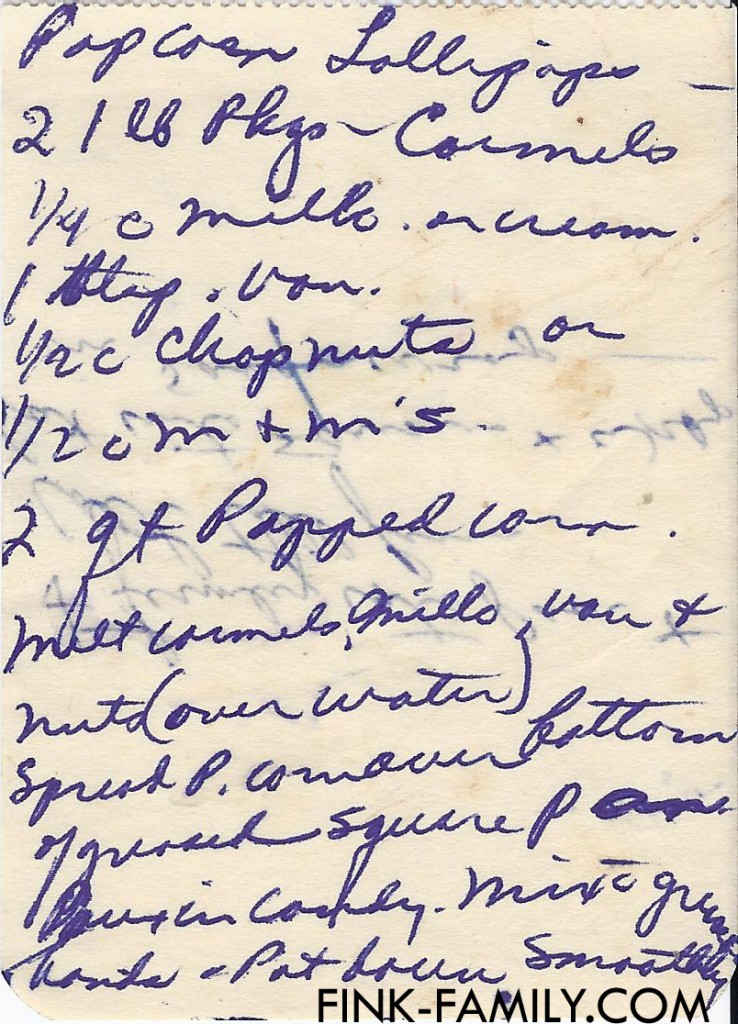 Popcorn Lollipops -
2 1 lb Pkgs - Carmels
1/4 c Milk . or cream.
1 tsp . van.
1/2 c chop nuts or
1/2 c M + M's.
2 qt Popped corn.
Melt carmels, Milk, van +
nuts (over water)
Spread P. corn over bottom
of greased square Pan
Pour in candy. Mix c greased
hands - Pat down smoothly
FINK-FAMILY.COM